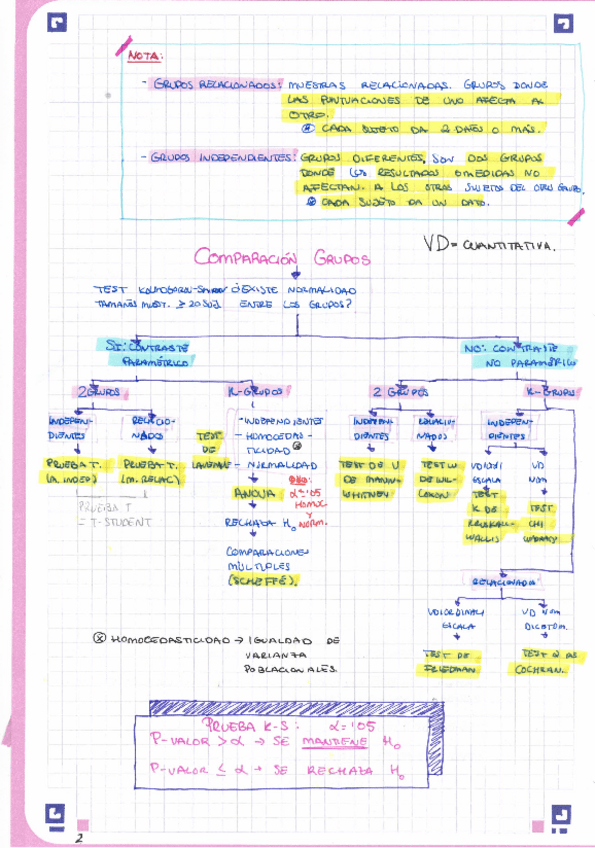 NOTA:
- GRUPOS RELACIONADOS: MUESTRAS RELACIONADAS. GRUPOS DONDE
LAS PUNTUACIONES DE UNO AFECTA AL
OTRO.
CADA SUJETO DA 2 DATOS O MÁS.
- GRUPOS INDEPENDIENTES: GRUPOS DIFERENTES, SON DOS GRUPOS
DONDE LOS RESULTADOS O MEDIDAS NO
AFECTAN. A LOS OTROS SUJETOS DEL OTRO GRUPO.
CADA SUJETO DA UN DATO.
VD = CUANTITATIVA.
COMPARACIÓN GRUPOS
TEST ¿EXISTE NORMALIDAD
TAMAÑOS MUEST. ≥ 20 SUJ. ENTRE LOS GRUPOS?
SI: CONTRASTE
PARAMÉTRICO
NO: CONTRASTE
NO PARAMÉTRICO
2 GRUPOS
K-GRUPOS
2 GRUPOS
K-GRUPOS
INDEPEN-
DIENTES
RELACIO-
NADOS
TEST
DE
- INDEPENDIENTES
- HOMOCEDAS-
TICIDAD
- NORMALIDAD
INDEPEN-
DIENTES
RELACIO-
NADOS
INDEPEN-
DIENTES
PRUEBA T.
(M. INDEP)
PRUEBA T.
(M. RELAC)
PRUEBA T
= T-STUDENT
ANOVA
α='05
HOMOC.
Y
NORM.
RECHAZA H₀
COMPARACIONES
MÚLTIPLES
(SCHEFFÉ).
TEST DE U
DE MANN-
WHITNEY
TEST W
DE WIL-
COXON
ESCALA
TEST
K DE
KRUSKALL-
WALLIS
VD
NOM
TEST
CHI
RELACIONADA
ESCALA
VD NOM
DICOTOM.
TEST DE
FRIEDMAN.
TEST Q DE
COCHRAN.
HOMOCEDASTICIDAD → IGUALDAD DE
VARIANZA
POBLACIONALES.
PRUEBA K-S: α='05
P-VALOR > α → SE MANTIENE H₀
P-VALOR ≤ α → SE RECHAZA H₀
2